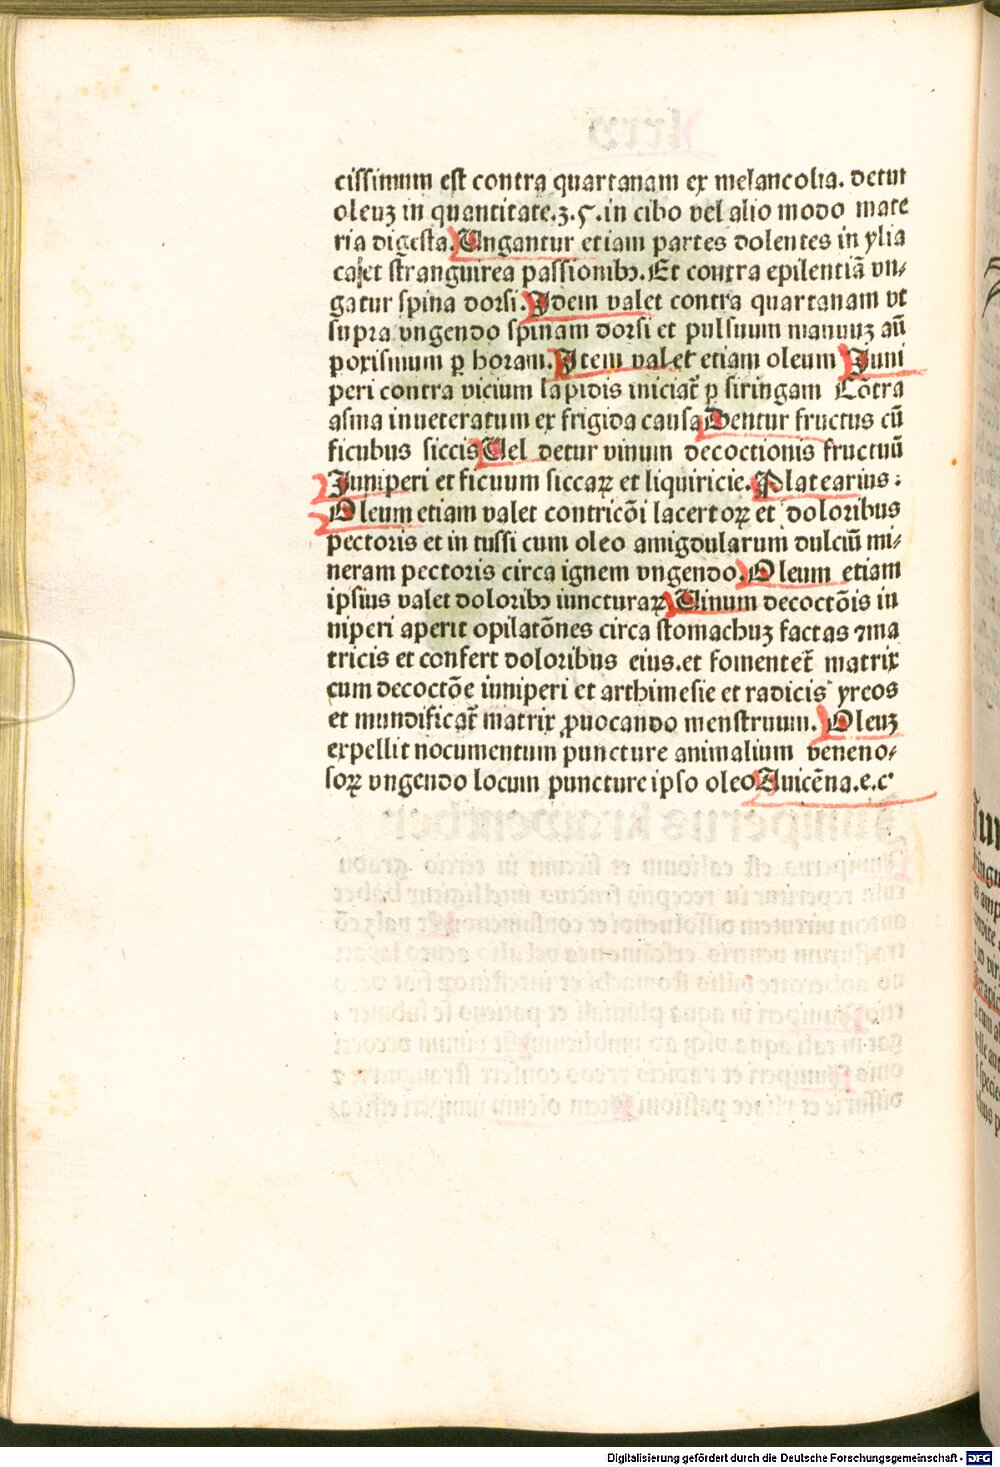 cissimum est contra quartanam ex melancolia. detur
oleuʒ in quantitate.ʒ.ς.in cibo vel alio modo mate
ria digesta.Ungantur etiam partes dolentes in ylia
ca et stranguirea passionibꝰ.Et contra epilentiā vn⸗
gatur spina dorsi.Idem valet contra quartanam vt
supra vngendo spinam dorsi et pulsuum manuuʒ añ
poxismum ꝑ horam.Item valet etiam oleum Juni
peri contra vicium lapidis iniciat̄ ꝑ siringam Cōtra
asma inueteratum ex frigida causa Dentur fructus cū
ficubus siccis Uel detur vinum decoctionis fructuū
Juniperi et ficuum siccaꝝ et liquiricie.Platearius :
Oleum etiam valet contricōi lacertoꝝ et doloribus
pectoris et in tussi cum oleo amigdularum dulciū mi⸗
neram pectoris circa ignem vngendo.Oleum etiam
ipsius valet doloribꝰ iuncturaꝝ Uinum decoctōis iu
niperi aperit opilatōnes circa stomachuʒ factas ⁊ma
tricis et confert doloribus eius.et fomentet̄ matrix
cum decoctōe iuniperi et arthimesie et radicis yreos
et mundificat̄ matrix ꝓuocando menstruum. Oleuʒ
expellit nocumentum puncture animalium veneno⸗
soꝝ vngendo locum puncture ipso oleo Auicēna.e.c
Digitalisierung gefördert durch die Deutsche Forschungsgemeinschaft - DFG